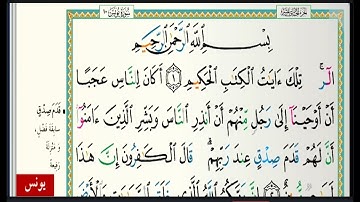 سُورَةُ يُونُسَ ١٠
بِسْمِ ٱللَّهِ ٱلرَّحْمَٰنِ ٱلرَّحِيمِ
الٓر ۚ تِلْكَ ءَايَٰتُ ٱلْكِتَٰبِ ٱلْحَكِيمِ ١ أَكَانَ لِلنَّاسِ عَجَبًا
أَنْ أَوْحَيْنَآ إِلَىٰ رَجُلٍ مِّنْهُمْ أَنْ أَنذِرِ ٱلنَّاسَ وَبَشِّرِ ٱلَّذِينَ ءَامَنُوٓا۟
أَنَّ لَهُمْ قَدَمَ صِدْقٍ عِندَ رَبِّهِمْ ۗ قَالَ ٱلْكَٰفِرُونَ إِنَّ هَٰذَا
قَدَمَ صِدْقٍ
سَابِقَةَ فَضْلٍ
وَمَنْزِلَةً
رَفِيعَةً
يونس